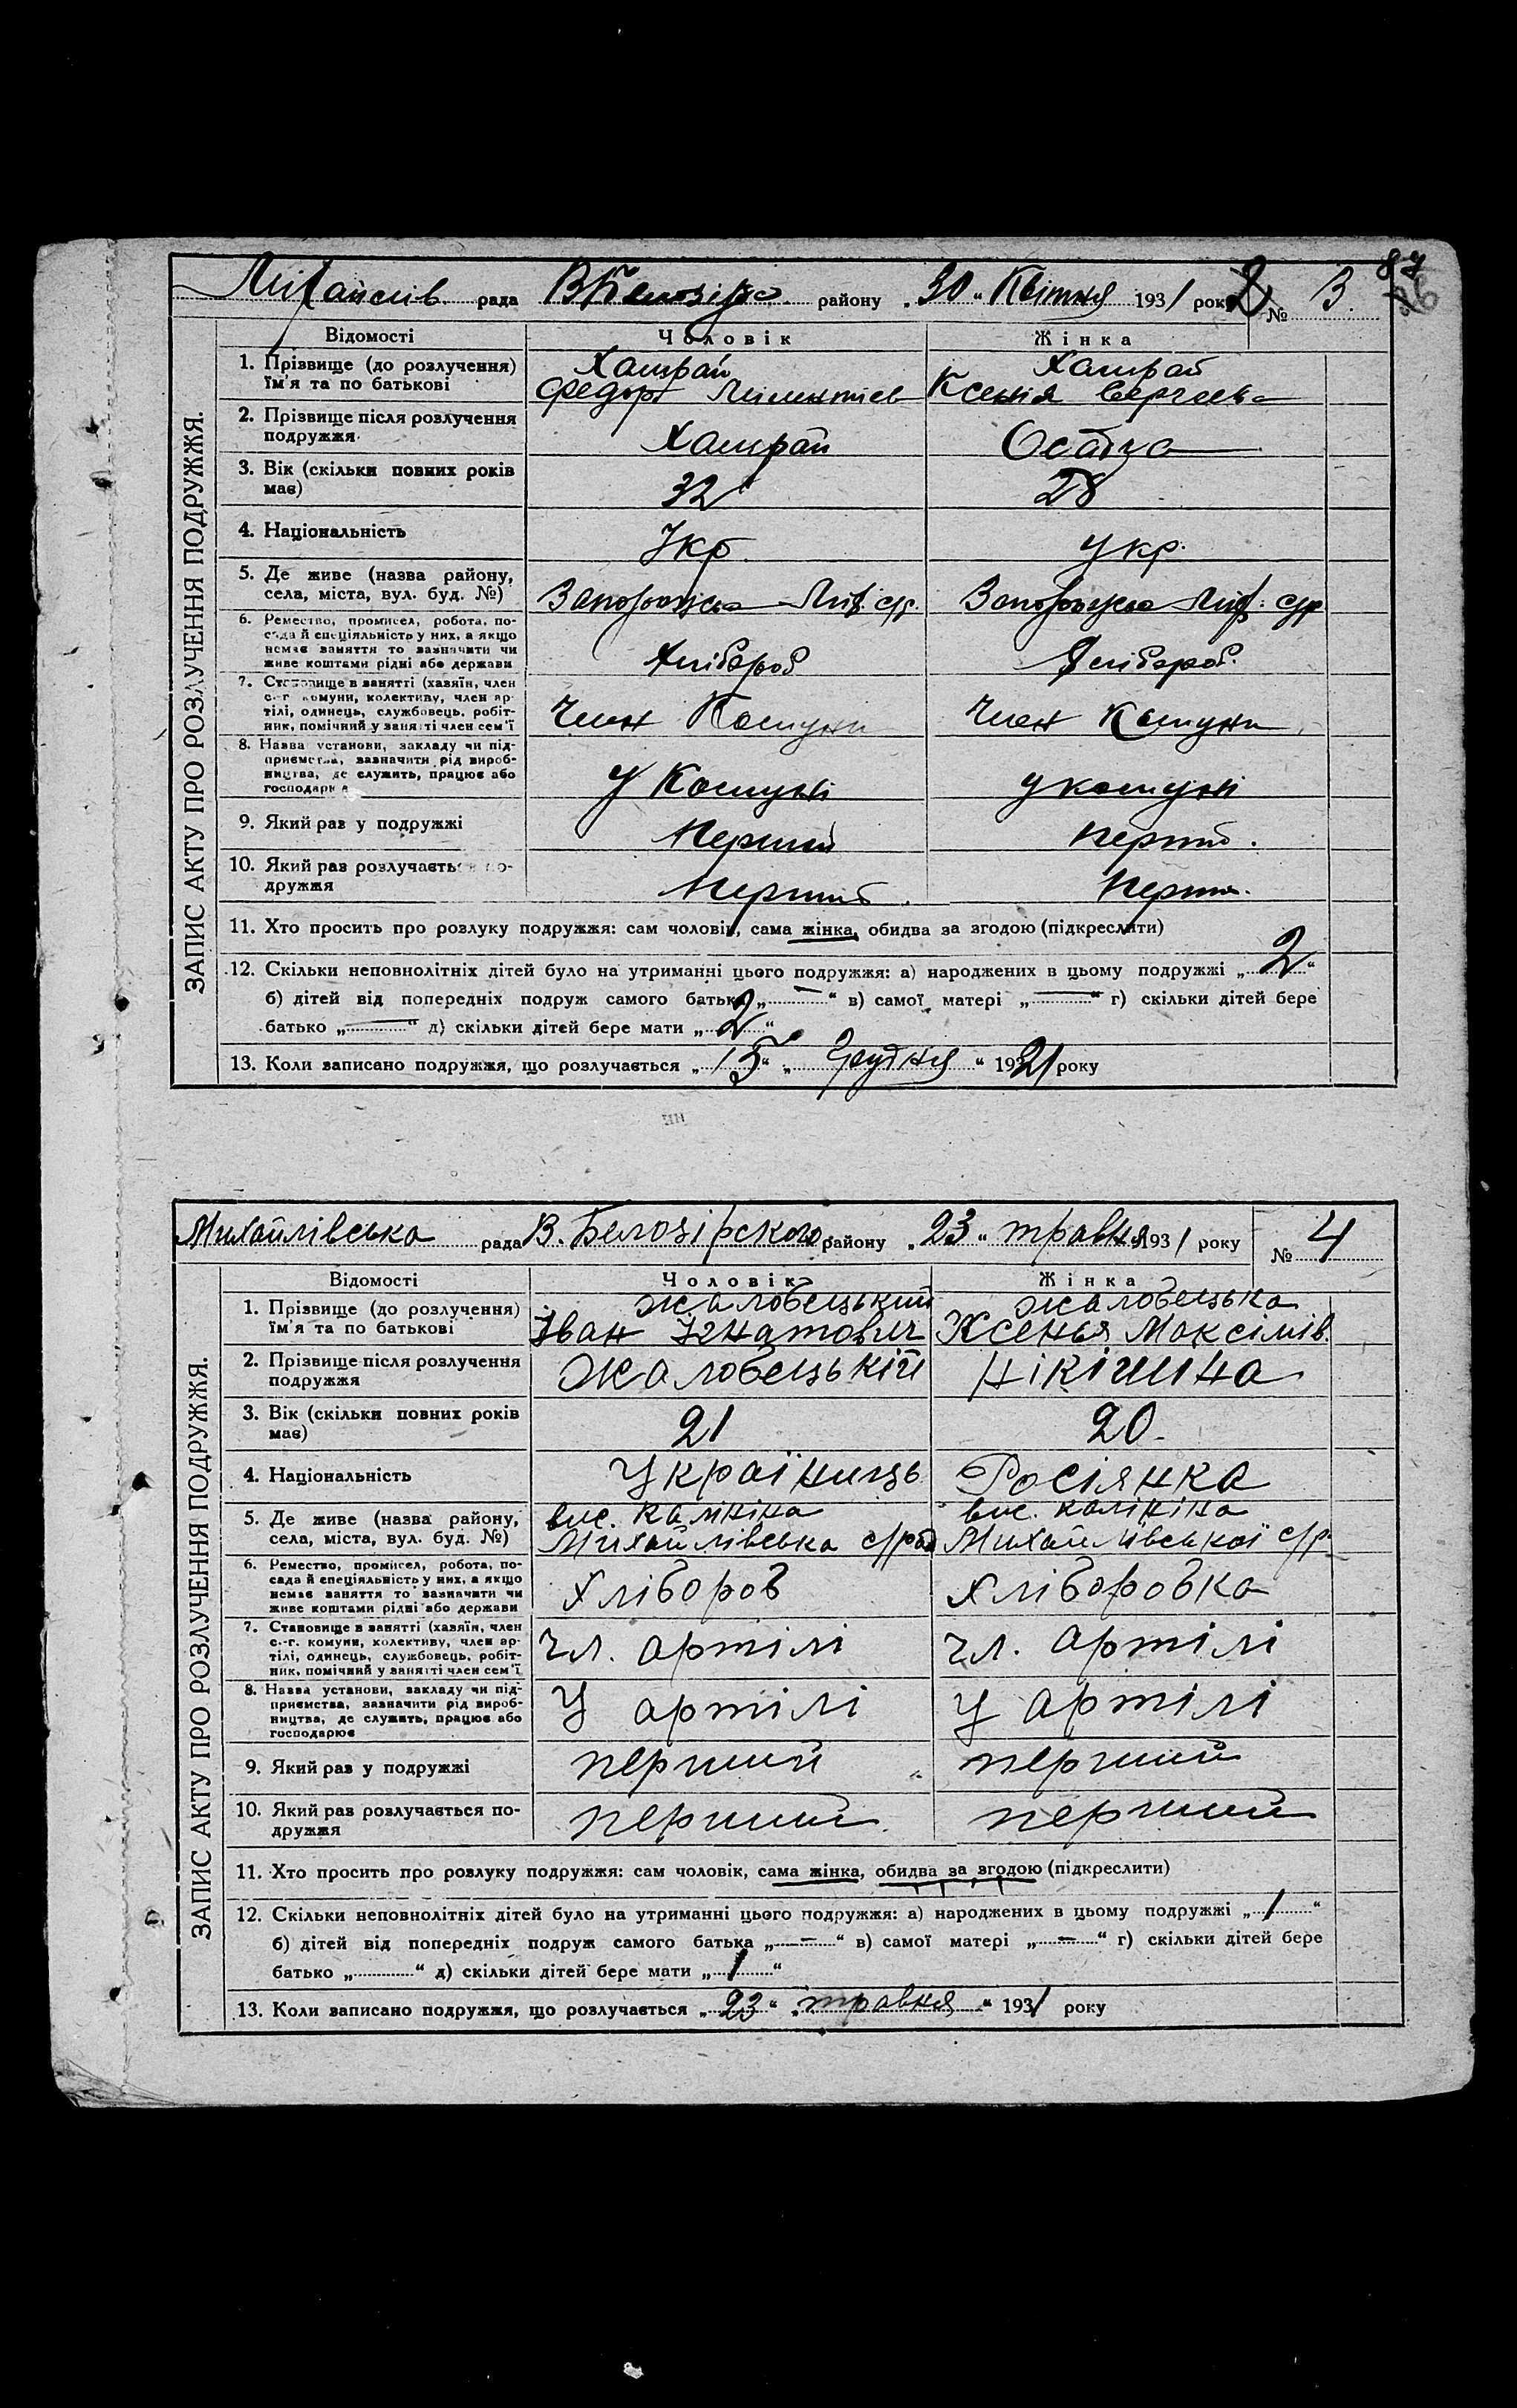 87
рада району „30“ Квітня 1931 року № 3.
ЗАПИС АКТУ ПРО РОЗЛУЧЕННЯ ПОДРУЖЖЯ.
Відомості Чоловік Жінка
1. Прізвище (до розлучення) їм'я та по батькові
Федор Ксенія
2. Прізвище після розлучення подружжя
3. Вік (скільки повних років має)
32 28
4. Національність
Укр. укр.
5. Де живе (назва району, села, міста, вул. буд. №)
6. Ремество, промисел, робота, посада й спеціяльність у них, а якщо немає заняття то зазначити чи живе коштами рідні або держави
Хлібороб Хлібороб.
7. Становище в занятті (хазяїн, член с.-г. комуни, колективу, член артілі, одинець, службовець, робітник, помічний у занятті член сем'ї
Член Комуни Член Комуни
8. Назва установи, закладу чи підприємства, зазначити рід виробництва, де служить, працює або господарює
У Комуні у комуні
9. Який раз у подружжі
Перший перший.
10. Який раз розлучається подружжя
Перший.
11. Хто просить про розлуку подружжя: сам чоловік, сама жінка, обидва за згодою (підкреслити)
12. Скільки неповнолітніх дітей було на утриманні цього подружжя: а) народжених в цьому подружжі „2“
б) дітей від попередніх подруж самого батька „—“ в) самої матері „—“ г) скільки дітей бере
батько „—“ д) скільки дітей бере мати „2“
13. Коли записано подружжя, що розлучається „15“ „Грудня“ 1921 року
Михайлівська рада В. Белозірского району „23“ травня 1931 року № 4
ЗАПИС АКТУ ПРО РОЗЛУЧЕННЯ ПОДРУЖЖЯ.
Відомості Чоловік Жінка
1. Прізвище (до розлучення) їм'я та по батькові
Жалобецький Жалобецька
Іван Ігнатович Ксенья Максімів.
2. Прізвище після розлучення подружжя
Жалобецькій Нікішина
3. Вік (скільки повних років має)
21 20.
4. Національність
Українець Росіянка
5. Де живе (назва району, села, міста, вул. буд. №)
вис. Калініна вис. Калініна
Михайлівська с/рад Михайлівської с/р.
6. Ремество, промисел, робота, посада й спеціяльність у них, а якщо немає заняття то зазначити чи живе коштами рідні або держави
Хлібороб Хліборобка
7. Становище в занятті (хазяїн, член с.-г. комуни, колективу, член артілі, одинець, службовець, робітник, помічний у занятті член сем'ї
чл. артілі чл. артілі
8. Назва установи, закладу чи підприємства, зазначити рід виробництва, де служить, працює або господарює
У артілі У артілі
9. Який раз у подружжі
перший перший
10. Який раз розлучається подружжя
перший перший
11. Хто просить про розлуку подружжя: сам чоловік, сама жінка, обидва за згодою (підкреслити)
12. Скільки неповнолітніх дітей було на утриманні цього подружжя: а) народжених в цьому подружжі „1“
б) дітей від попередніх подруж самого батька „—“ в) самої матері „—“ г) скільки дітей бере
батько „“ д) скільки дітей бере мати „1“
13. Коли записано подружжя, що розлучається „23“ „травня“ 1931 року